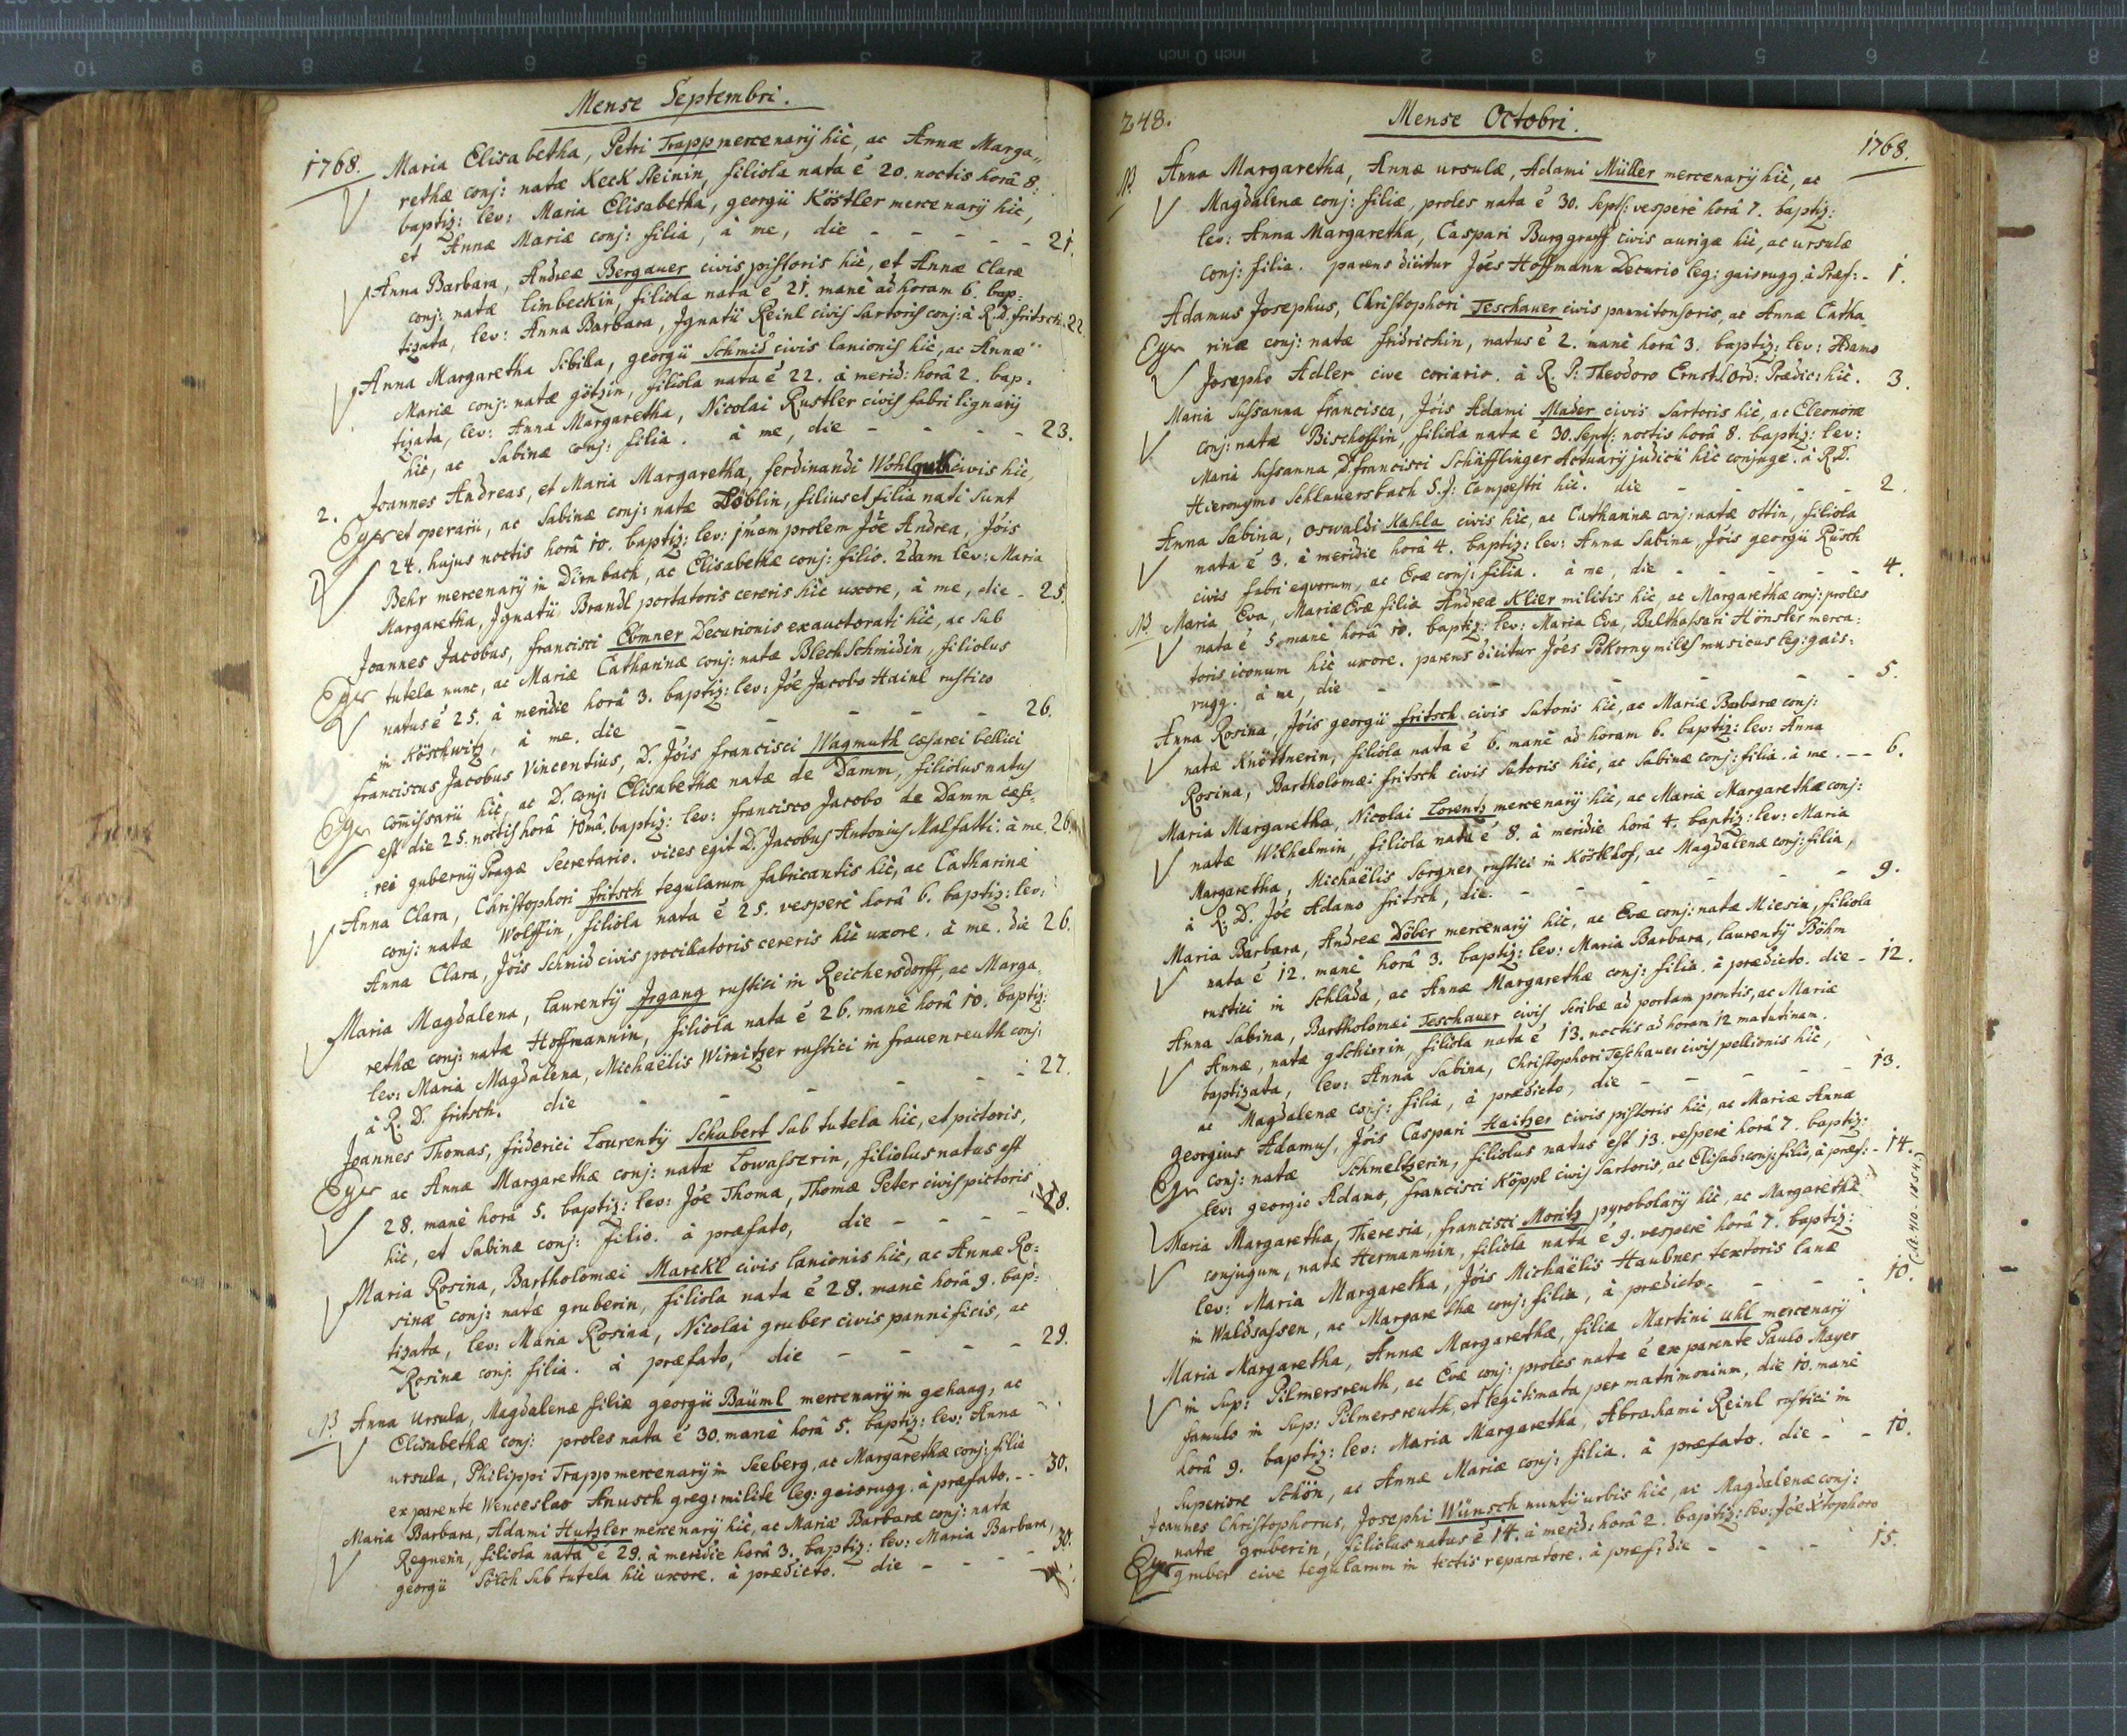 Mense Septembri.
1768. Maria Elisabetha, Petri Trapp mercenarÿ hic, ac Annæ Marga„
rethæ conj: natæ Keck Steinin, filiola nata é 20. noctis horâ 8.
baptiz: lev: Maria Elisabetha, georgii Köstler mercenarÿ hic,
et Annæ Mariæ conj: filia, à me, die - - - - - 21.
Anna Barbara, Andreæ Bergauer civis pistoris hic, et Annæ Claræ
conj: natæ limbeckin, filiola nata é 21. manè ad horam 6. bap:
tizata, lev: Anna Barbara, Jgnatii Reinl civis sartoris conj: à R.D. fritsch. 22
Anna Margaretha Sibilla, georgii Schmid civis lanionis hic, ac Annæ
Mariæ conj: natæ götzin, filiola nata é 22. à merid: horâ 2. bap:
tizata, lev: Anna Margaretha, Nicolai Rustler civis fabri lignarÿ
hic, ac Sabinæ conj: filia. à me, die - - - - 23.
2. Joannes Andreas, et Maria Margaretha, ferdinandi Wohlguth civis hic,
Eger et operarii, ac Sabinæ conj: natæ Döblin, filius et filia nati sunt
24. hujus noctis horâ 10. baptiz: lev: jmam prolem Jóe Andrea, Jóis
Behr mercenarÿ in Dirnbach, ac Elisabethæ conj: filio. 2dam lev: Maria
Margaretha, Jgnatii Brandl portatoris cereris hic uxore, à me, die - 25.
Joannes Jacobus, francisci Ebmner Decurionis exauctorati hic, ac sub
Eger tutela nunc, ac Mariæ Catharinæ conj: natæ BlechSchmidin, filiolus
natus é 25. à meridie horâ 3. baptiz: lev: Jóe Jacobo Hainl rustico
in Köschwitz, à me. die - - - - - 26.
franciscus Jacobus Vincentius, D. Jóis francisci Wagmuth cæsarei bellici
Eger com̃issarii hic, ac D. conj: Elisabethæ natæ de Damm, filiolus natus
est die 25. noctis horâ 10mâ baptiz: lev: francisco Jacobo de Damm cæsa
: rei gubernÿ Pragæ Secretario. vices egit D. Jacobus Antonius Malfatti. à me. 26
Anna Clara, Christophori fritsch tegularum fabricantis hic, ac Catharinæ
conj: natæ Wolffin, filiola nata é 25. vesperè horâ 6. baptiz: lev:
Anna Clara, Jóis Schmid civis pocillatoris cereris hic uxore. à me. die 26.
Maria Magdalena, laurentÿ Jrgang rustici in Reichersdorff, ac Marga:
rethæ conj: natæ Hoffmannin, filiola nata é 26. manè horâ 10. baptiz:
lev: Maria Magdalena, Michaëlis Wirnitzer rustici in frauenreuth conj:
à R. D. fritsch. die - - - - - 27.
Joannes Thomas, friderici Lourentÿ Schubert sub tutela hic, et pictoris,
Eger ac Annæ Margarethæ conj: natæ Lowasserin, filiolus natus est
28. manè horâ 5. baptiz: lev: Jóe Thoma, Thomæ Peter civis pictoris
hic, et Sabinæ conj: filio. à præfato, die - - - - 28.
Maria Rosina, Bartholomæi Marckl civis lanionis hic, ac Annæ Ro:
sinæ conj: natæ gruberin, filiola nata é 28. manè horâ 9. bap:
tizata, lev: Maria Rosina, Nicolai gruber civis pannificis, ac
Rosinæ conj: filia. à præfato, die - - - - 29.
NB Anna Ursula, Magdalenæ filiæ georgii Baüml mercenarÿ in gehaag, ac
Elisabethæ conj: proles nata é 30. manè horâ 5. baptiz: lev: Anna
ursula, Philippi Trapp mercenarÿ in Seeberg, ac Margarethæ conj: filia
ex parente Wenceslao Anusch greg: milite leg: gaisrugg. à præfato. - - 30.
Maria Barbara, Adami Hutzler mercenarÿ hic, ac Mariæ Barbaræ conj: natæ
Regnerin, filiola nata é 29. à meridie horâ 3. baptiz: lev: Maria Barbara,
georgii Sölch sub tutela hic uxore. à prædicto. die - - - - 30.
248. Mense Octobri. 1768.
NB Anna Margaretha, Annæ ursulæ, Adami Müller mercenarÿ hic, ac
Magdalenæ conj: filiæ, proles nata é 30. Sept: vesperè horâ 7. baptiz:
lev: Anna Margaretha, Caspari Burggraff civis aurigæ hic, ac ursulæ
conj: filia. parens dicitur Jóes Hoffmann Decurio leg: gaisrugg. à Præf: - 1.
Adamus Josephus, Christophori Teschauer civis pannitonsoris, ac Annæ Catha
Eger rinæ conj: natæ fridrichin, natus é 2. manè horâ 3. baptiz: lev: Adamo
Josepho Adler cive coriario. à R. P: Theodoro Ernst Ord: Prædic: hic. 3.
Maria Sussanna francisca, Jóis Adami Mader civis Sartoris hic, ac Eleonoræ
conj: natæ Bischoffin, filiola nata é 30. Sept: noctis horâ 8. baptiz: lev:
Maria Sussanna D. francisci Schäfflinger Actuarÿ judicii hic conjuge. à R.D.
Hieronymo Schlauersbach S. J: Campestri hic. die - - - - 2.
Anna Sabina, oswaldi Kahla civis hic, ac Catharinæ conj: natæ ottin, filiola
nata é 3. à meridie horâ 4. baptiz: lev: Anna Sabina, Jóis georgii Rüsch
civis fabri eqvorum, ac Evæ conj: filia. à me, die - - - - - 4.
NB Maria Eva, Mariæ Evæ filiæ Andreæ Klier militis hic ac Margarethæ conj: proles
nata é 5. manè horâ 10. baptiz: lev: Maria Eva, Balthassari Hönster merca:
toris iconum hic uxore. parens dicitur Jóes Pokorny miles musicus leg: gais:
rugg. à me, die - - - - - 5.
Anna Rosina, Jóis georgii fritsch civis Sutoris hic, ac Mariæ Barbaræ conj:
natæ Knöttnerin, filiola nata é 6. manè ad horam 6. baptiz: lev: Anna
Rosina, Bartholomæi fritsch civis Sutoris hic, ac Sabinæ conj: filia. à me. - - 6.
Maria Margaretha, Nicolai Lorentz mercenarÿ hic, ac Mariæ Margarethæ conj:
natæ Wilhelmin, filiola nata é 8. à meridie horâ 4. baptiz: lev: Maria
Margaretha, Michaëlis Sorgner rustici in Köstldof, ac Magdalenæ conj: filia,
à R. D. Jóe Adamo fritsch, die. - - - - - 9.
Maria Barbara, Andreæ Döber mercenarÿ hic, ac Evæ conj: natæ Miesin, filiola
nata é 12. manè horâ 3. baptiz: lev: Maria Barbara, laurentÿ Böhm
rustici in Schlada, ac Annæ Margarethæ conj: filia. à prædicto. die - 12.
Anna Sabina, Bartholomæi Teschauer civis Scribæ ad portam pontis, ac Mariæ
Annæ, natæ gschierin, filiola nata é 13. noctis ad horam 12 matutinam.
baptizata, lev: Anna Sabina, Christophori Teschauer civis pellionis hic,
ac Magdalenæ conj: filia, à prædicto, die - - - - - 13.
georgius Adamus, Jóis Caspari Haitzer civis pistoris hic, ac Mariæ Anna
Eger conj: natæ Schmeltzerin, filiolus natus est 13. vesperè horâ 7. baptiz:
lev: georgio Adamo, francisci Köppl civis Sartoris, ac Elisab: conj: filio, à præf: - 14.
Maria Margaretha, Theresia, francisci Moritz pyrobolarÿ hic, ac Margarethæ
conjugum, natæ Hermannin, filiola nata é 9. vesperè horâ 7. baptiz:
lev: Maria Margaretha, Jóis Michaëlis Haubner textoris lanæ
in Waldsassen, ac Margarethæ conj: filia, à prædicto. - - - 10.
Maria Margaretha, Annæ Margarethæ, filiæ Martini Uhl mercenarÿ
in Sup: Pilmersreuth, ac Evæ conj: proles nata é ex parente Paulo Mayer
famulo in Sup: Pilmersreuth, et legitimata per matrimonium, die 10. manè
horâ 9. baptiz: lev: Maria Margaretha, Abrahami Reinl rustici in
Superiore Schön, ac Annæ Mariæ conj: filia. à præfato. die - - 10.
Joannes Christophorus, Josephi Wünsch nuntÿ urbis hic, ac Magdalenæ conj:
natæ gruberin, filiolus natus é 14. à merid: horâ 2. baptiz: lev: Jóe Xtophoro
Eger gruber cive tegularum in tectis reparatore. à præf: die - - - 15.